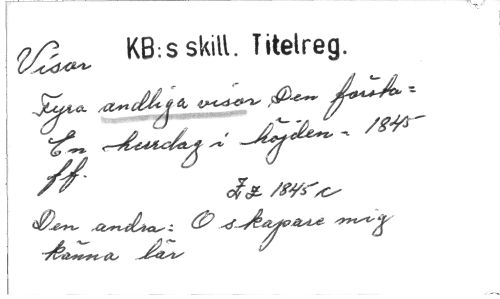 KB:s skill. Titelreg.
Visor
Fyra andliga visor, Den första =
En herrdag i höjden - 1845
ff.
Zz 1845 c
Den andra: O skapare mig
känna lär